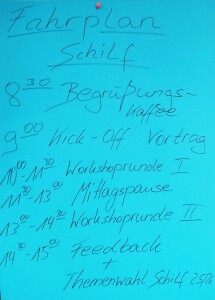 Fahrplan
Schilf
8 30 Begrüßungs-
Kaffee
9 00 Kick-Off Vortrag
10 00 - 11 30 Workshoprunde I
11 30 - 13 00 Mittagspause
13 00 - 14 30 Workshoprunde II
14 30 - 15 00 Feedback
+
Themenwahl Schilf 25/26